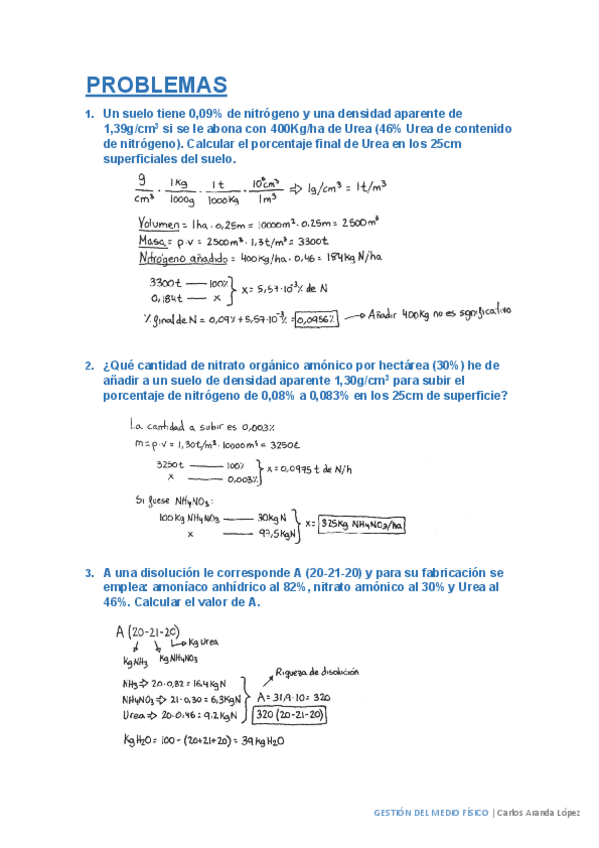 PROBLEMAS
1. Un suelo tiene 0,09% de nitrógeno y una densidad aparente de
1,39g/cm³ si se le abona con 400Kg/ha de Urea (46% Urea de contenido
de nitrógeno). Calcular el porcentaje final de Urea en los 25cm
superficiales del suelo.
g/cm³ · 1Kg/1000g · 1t/1000Kg · 10⁶cm³/1m³ => 1g/cm³ = 1t/m³
Volumen = 1ha · 0,25m = 10000m² · 0,25m = 2500m³
Masa = p·v = 2500m³ · 1,3t/m³ = 3300t
Nitrógeno añadido = 400kg/ha · 0,46 = 184kg N/ha
3300t — 100%
0,184t — x
x = 5,57·10⁻³% de N
% final de N = 0,09% + 5,57·10⁻³ = 0,0956% → Añadir 400Kg no es significativo
2. ¿Qué cantidad de nitrato orgánico amónico por hectárea (30%) he de
añadir a un suelo de densidad aparente 1,30g/cm³ para subir el
porcentaje de nitrógeno de 0,08% a 0,083% en los 25cm de superficie?
La cantidad a subir es 0,003%
m = p·v = 1,30t/m³ · 10000m² = 3250t
3250t — 100%
x — 0,003%
x = 0,0975 t de N/h
Si fuese NH4NO3:
100Kg NH4NO3 — 30Kg N
x — 97,5KgN
x = 325Kg NH4NO3/ha
3. A una disolución le corresponde A (20-21-20) y para su fabricación se
emplea: amoníaco anhídrido al 82%, nitrato amónico al 30% y Urea al
46%. Calcular el valor de A.
A (20-21-20)
Kg Urea
Kg NH3 Kg NH4NO3
Riqueza de disolución
NH3 => 20·0,82 = 16.4KgN
NH4NO3 => 21·0,30 = 6,3KgN
Urea => 20·0.46 = 9.2KgN
A = 31,9·10 = 320
320 (20-21-20)
Kg H2O = 100 - (20+21+20) = 39 Kg H2O
GESTIÓN DEL MEDIO FÍSICO | Carlos Aranda López